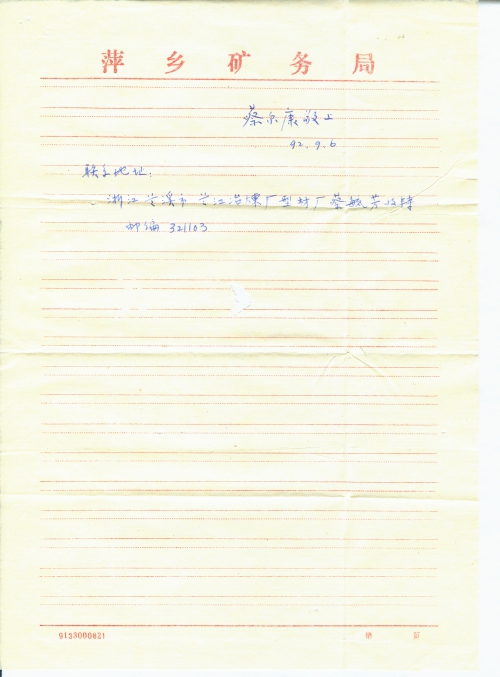 萍乡矿务局
蔡尔康敬上
92.9.6
联系地址:
浙江兰溪市兰江冶煉厂型材厂蔡毓芳收转
邮编 321103
9153000621 第 页